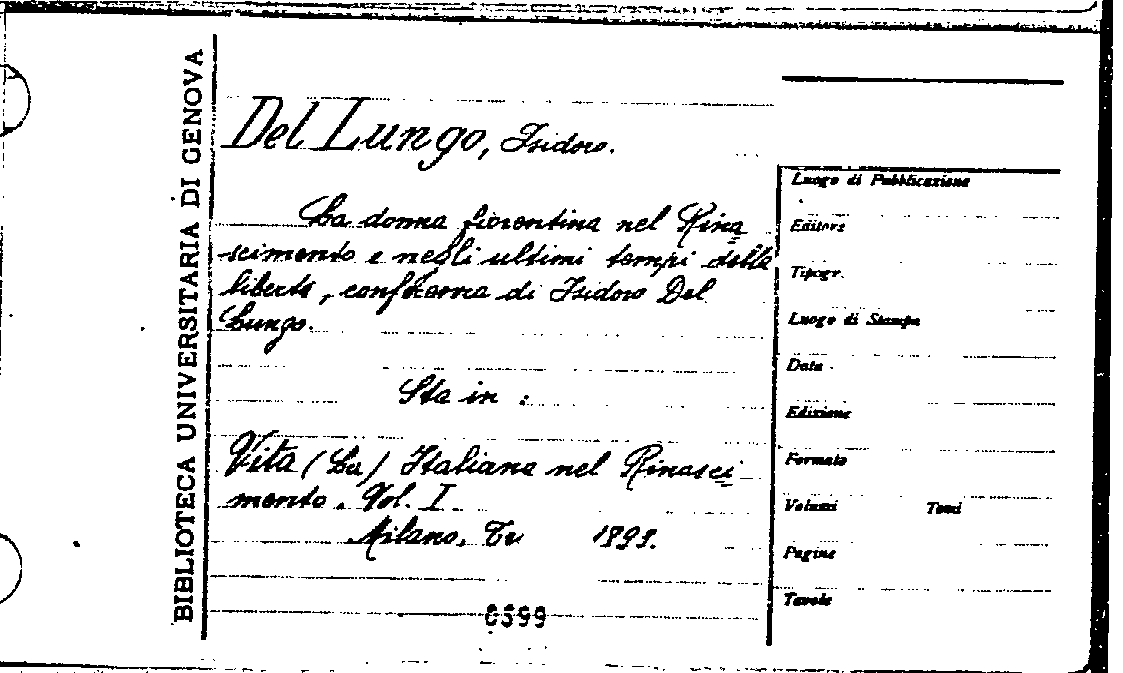 BIBLIOTECA UNIVERSITARIA DI GENOVA
Del Lungo, Isidoro.
La donna fiorentina nel Rina=
scimento e negli ultimi tempi della
libertà, conferenza di Isidoro Del
Lungo.
Sta in :
Vita (La) Italiana nel Rinasci=
mento. Vol. I
Milano, Tr 1893.
6599
Luogo di Pubblicazione
Editore
Tipogr.
Luogo di Stampa
Data
Edizione
Formato
Volumi Tomi
Pagine
Tavole